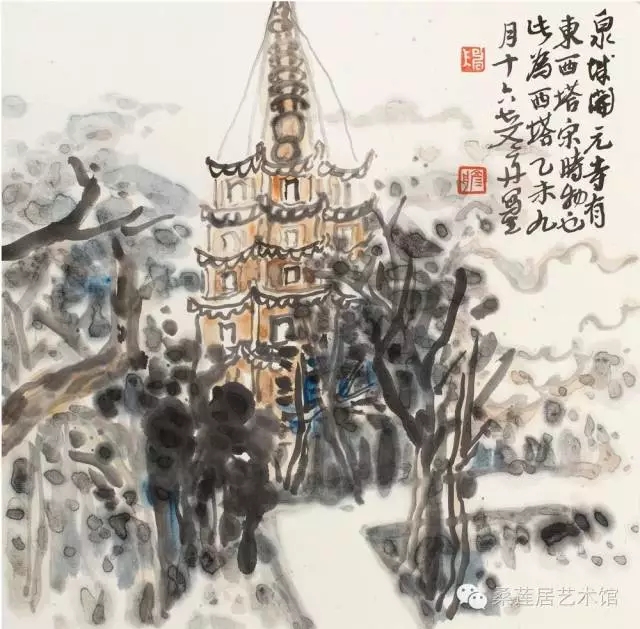 泉城開元寺有
東西塔宋時物也
此為西塔乙未九
月十六七
桑莲居艺术馆